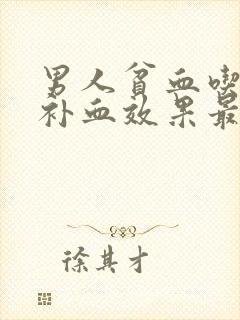 男人贫血喫
补血效果最
徐其才